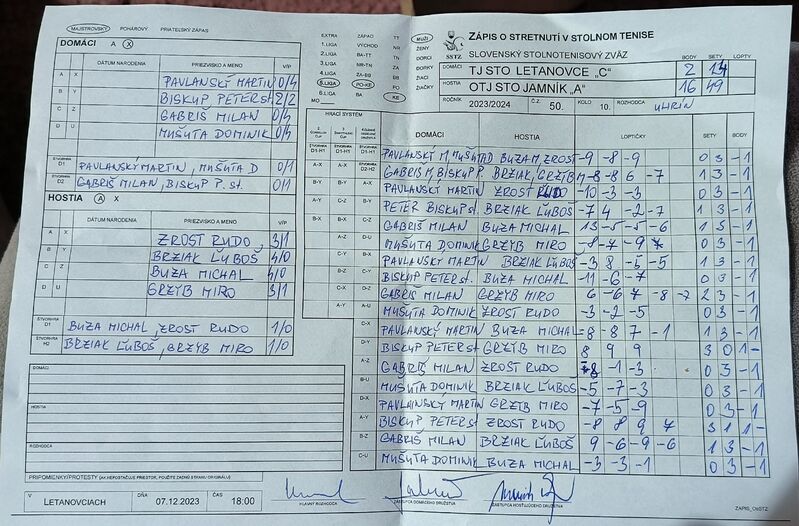 MAJSTROVSKÝ POHÁROVÝ PRIATEĽSKÝ ZÁPAS
DOMÁCI A X
DÁTUM NARODENIA PRIEZVISKO A MENO V/P
A X PAVLANSKÝ MARTIN 0/4
B Y BISKUP PETER st. 2/2
C Z GABRIŠ MILAN 0/4
D U MUŠUTA DOMINIK 0/4
ŠTVORHRA D1 PAVLANSKÝ MARTIN, MUŠUTA D 0/1
ŠTVORHRA D2 GABRIŠ MILAN, BISKUP P. st. 0/1
HOSTIA A X
DÁTUM NARODENIA PRIEZVISKO A MENO V/P
A X ZROST RUDO 3/1
B Y BRZIAK ĽUBOŠ 4/0
C Z BUZA MICHAL 4/0
D U GRZYB MIRO 3/1
ŠTVORHRA H1 BUZA MICHAL, ZROST RUDO 1/0
ŠTVORHRA H2 BRZIAK ĽUBOŠ, GRZYB MIRO 1/0
DOMÁCI
HOSTIA
ROZHODCA
PRIPOMIENKY/PROTESTY (AK NEPOSTAČUJE PRIESTOR, POUŽITE ZADNÚ STRANU ORIGINÁLU)
V LETANOVCIACH DŇA 07.12.2023 ČAS 18:00
HLAVNÝ ROZHODCA
ZÁSTUPCA DOMÁCEHO DRUŽSTVA
ZÁSTUPCA HOSŤUJÚCEHO DRUŽSTVA
ZÁPIS_OsSTZ
EXTRA ZÁPAD TT
1.LIGA VÝCHOD NR
2.LIGA BA-TT TN
3.LIGA NR-TN ZA
4.LIGA ZA-BB BB
5.LIGA PO-KE PO
6.LIGA BA KE
MO
MUŽI
ŽENY
DORCI
DORKY
ŽIACI
ŽIAČKY
SSTZ
ZÁPIS O STRETNUTÍ V STOLNOM TENISE
SLOVENSKÝ STOLNOTENISOVÝ ZVÄZ
BODY SETY LOPTY
DOMÁCI TJ STO LETANOVCE „C“ 2 14
HOSTIA OTJ STO JAMNÍK „A“ 16 49
ROČNÍK 2023/2024 Č.Z. 50. KOLO 10. ROZHODCA UHRÍN
HRACÍ SYSTÉM
DOMÁCI HOSTIA LOPTIČKY SETY BODY
PAVLANSKÝ M, MUŠUTA D BUZA M, ZROST -9 -8 -9 0 3 -1
GABRIŠ M, BISKUP P. BRZIAK, GRZYB M -8 -8 6 -7 1 3 -1
PAVLANSKÝ MARTIN ZROST RUDO -10 -3 -3 0 3 -1
PETER BISKUP st. BRZIAK ĽUBOŠ -7 4 -2 -7 1 3 -1
GABRIŠ MILAN BUZA MICHAL 13 -5 -5 -6 1 3 -1
MUŠUTA DOMINIK GRZYB MIRO -8 -7 -9 0 3 -1
PAVLANSKÝ MARTIN BRZIAK ĽUBOŠ -3 8 -5 -5 1 3 -1
BISKUP PETER st. BUZA MICHAL -11 -6 -7 0 3 -1
GABRIŠ MILAN GRZYB MIRO 6 -6 7 -8 -7 2 3 -1
MUŠUTA DOMINIK ZROST RUDO -3 -2 -5 0 3 -1
PAVLANSKÝ MARTIN BUZA MICHAL -8 -8 7 -1 1 3 -1
BISKUP PETER st. GRZYB MIRO 8 9 9 3 0 1 -
GABRIŠ MILAN ZROST RUDO -8 -1 -3 0 3 -1
MUŠUTA DOMINIK BRZIAK ĽUBOŠ -5 -7 -3 0 3 -1
PAVLANSKÝ MARTIN GRZYB MIRO -7 -5 -9 0 3 -1
BISKUP PETER st ZROST RUDO -8 8 9 7 3 1 1 -
GABRIŠ MILAN BRZIAK ĽUBOŠ 9 -6 -9 -6 1 3 -1
MUŠUTA DOMINIK BUZA MICHAL -3 -3 -1 0 3 -1